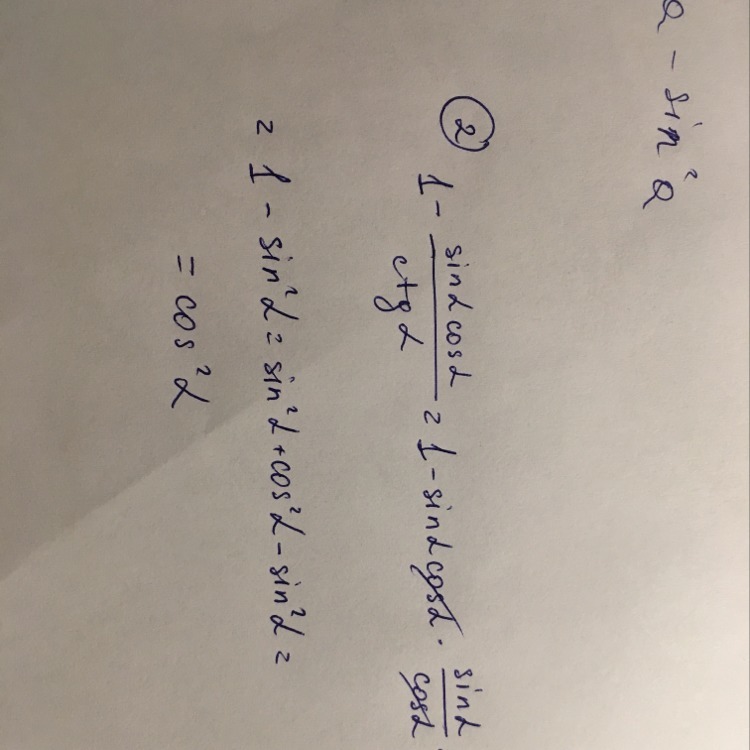 α - sin²α
② 1 - sinα cosα / ctgα = 1 - sinα cosα · sinα / cosα
= 1 - sin²α = sin²α + cos²α - sin²α =
= cos²α